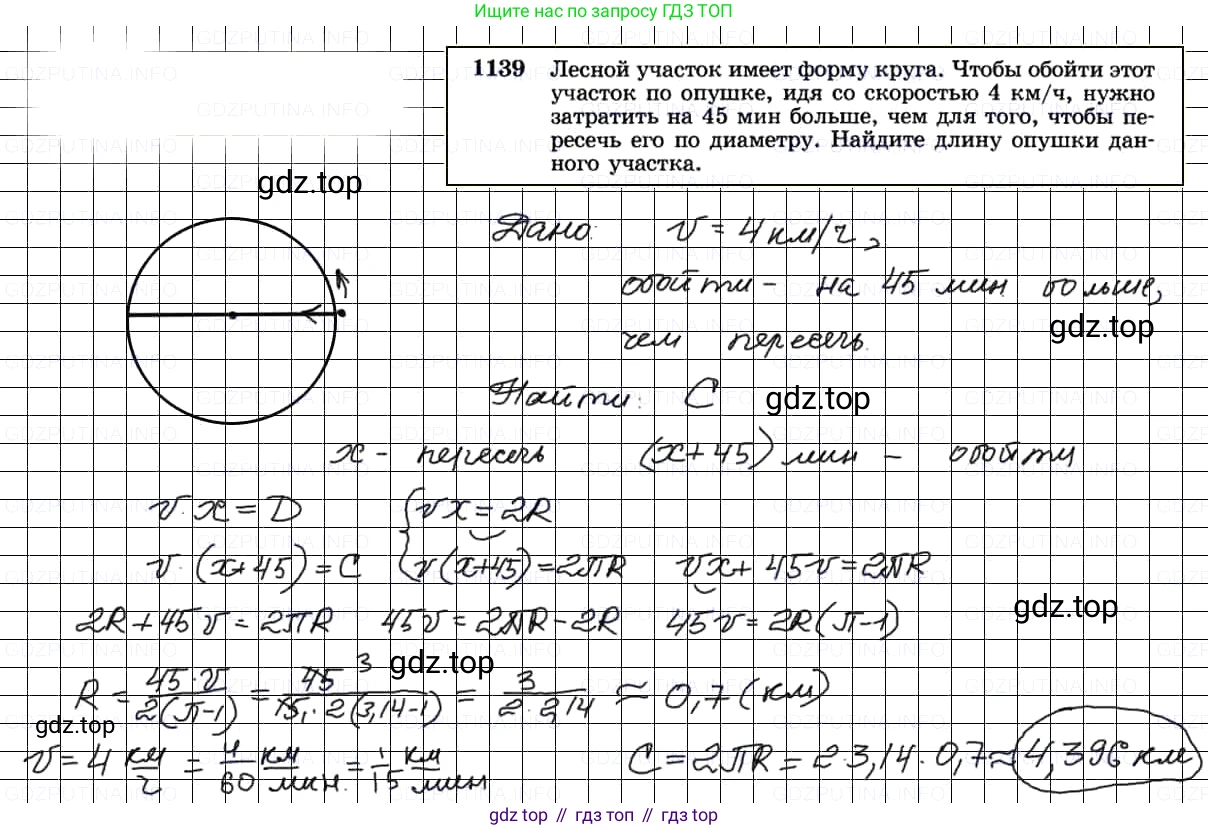 Ищите нас по запросу ГДЗ ТОП
1139 Лесной участок имеет форму круга. Чтобы обойти этот
участок по опушке, идя со скоростью 4 км/ч, нужно
затратить на 45 мин больше, чем для того, чтобы пе-
ресечь его по диаметру. Найдите длину опушки дан-
ного участка.
gdz.top
Дано: v = 4 км/ч,
обойти – на 45 мин больше,
gdz.top
чем пересечь.
Найти: C
gdz.top
x – пересечь (x+45) мин – обойти
v·x = D { vx = 2R
v·(x+45) = C v(x+45) = 2πR vx + 45v = 2πR
gdz.top
2R + 45v = 2πR 45v = 2πR – 2R 45v = 2R(π–1)
gdz.top
R = 45·v / 2(π–1) = 45 3 / 15·2(3,14–1) = 3 / 2·2,14 ≈ 0,7 (км)
gdz.top
v = 4 км/ч = 4/60 км/мин. = 1/15 км/мин C = 2πR = 2·3,14·0,7 ≈ 4,396 км
gdz top // гдз топ // gdz top
GDZPUTINA.INFO